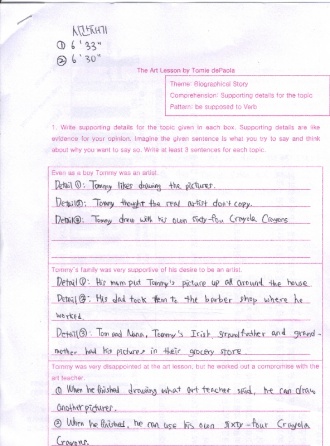 ① 6' 33"
② 6' 30"
The Art Lesson by Tomie dePaola
Theme: Biographical Story
Comprehension: Supporting details for the topic
Pattern: be supposed to Verb
1. Write supporting details for the topic given in each box. Supporting details are like
evidence for your opinion. Imagine the given sentence is what you try to say and think
about why you want to say so. Write at least 3 sentences for each topic.
Even as a boy Tommy was an artist.
Detail①: Tommy likes drawing the pictures.
Detail②: Tommy thought the real artist don't copy.
Detail③: Tommy drew with his own sixty-four Crayola Crayons
Tommy's family was very supportive of his desire to be an artist.
Detail①: His mom put Tommy's picture up all around the house
Detail②: His dad took them to the barber shop where he
worked.
Detail③: Tom and Nana, Tommy's Irish grandfather and grand-
mother had his pictures in their grocery store.
Tommy was very disappointed at the art lesson, but he worked out a compromise with the
art teacher.
① When he finished drawing what art teacher said, he can draw
another pictures.
② When he finished, he can use his own sixty-four Crayola
Crayons.